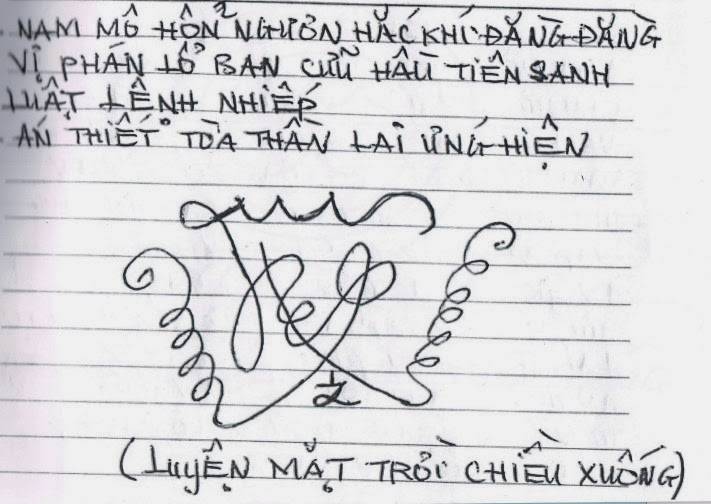 NAM MÔ HỔN NGUƠN HẮC KHÍ ĐẰNG ĐẰNG
VỊ PHÁN LỔ BAN CỬU HẦU TIÊN SANH
LUẬT LỆNH NHIẾP
ÁN THIẾT TÒA THẦN LAI ỨNG HIỆN
(LUYỆN MẶT TRỜI CHIỀU XUỐNG)